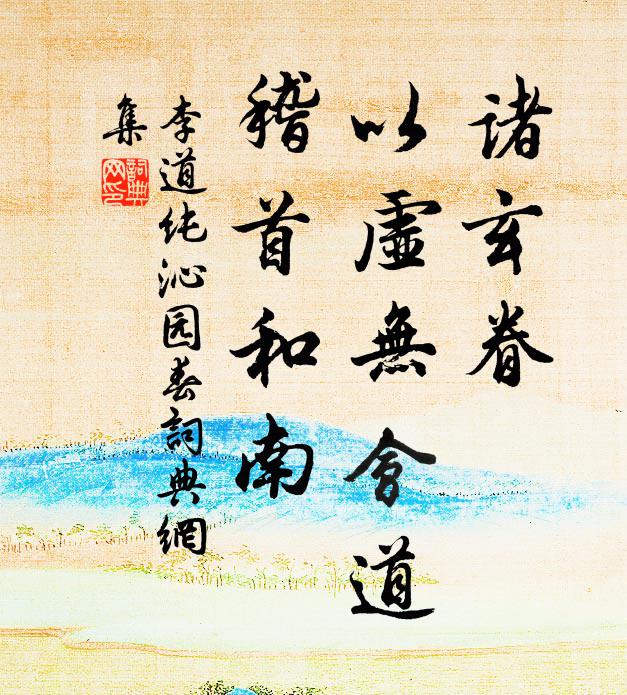 諸玄眷
以虛無會道
稽首和南
李道纯沁园春詞典網
集
詞典网印